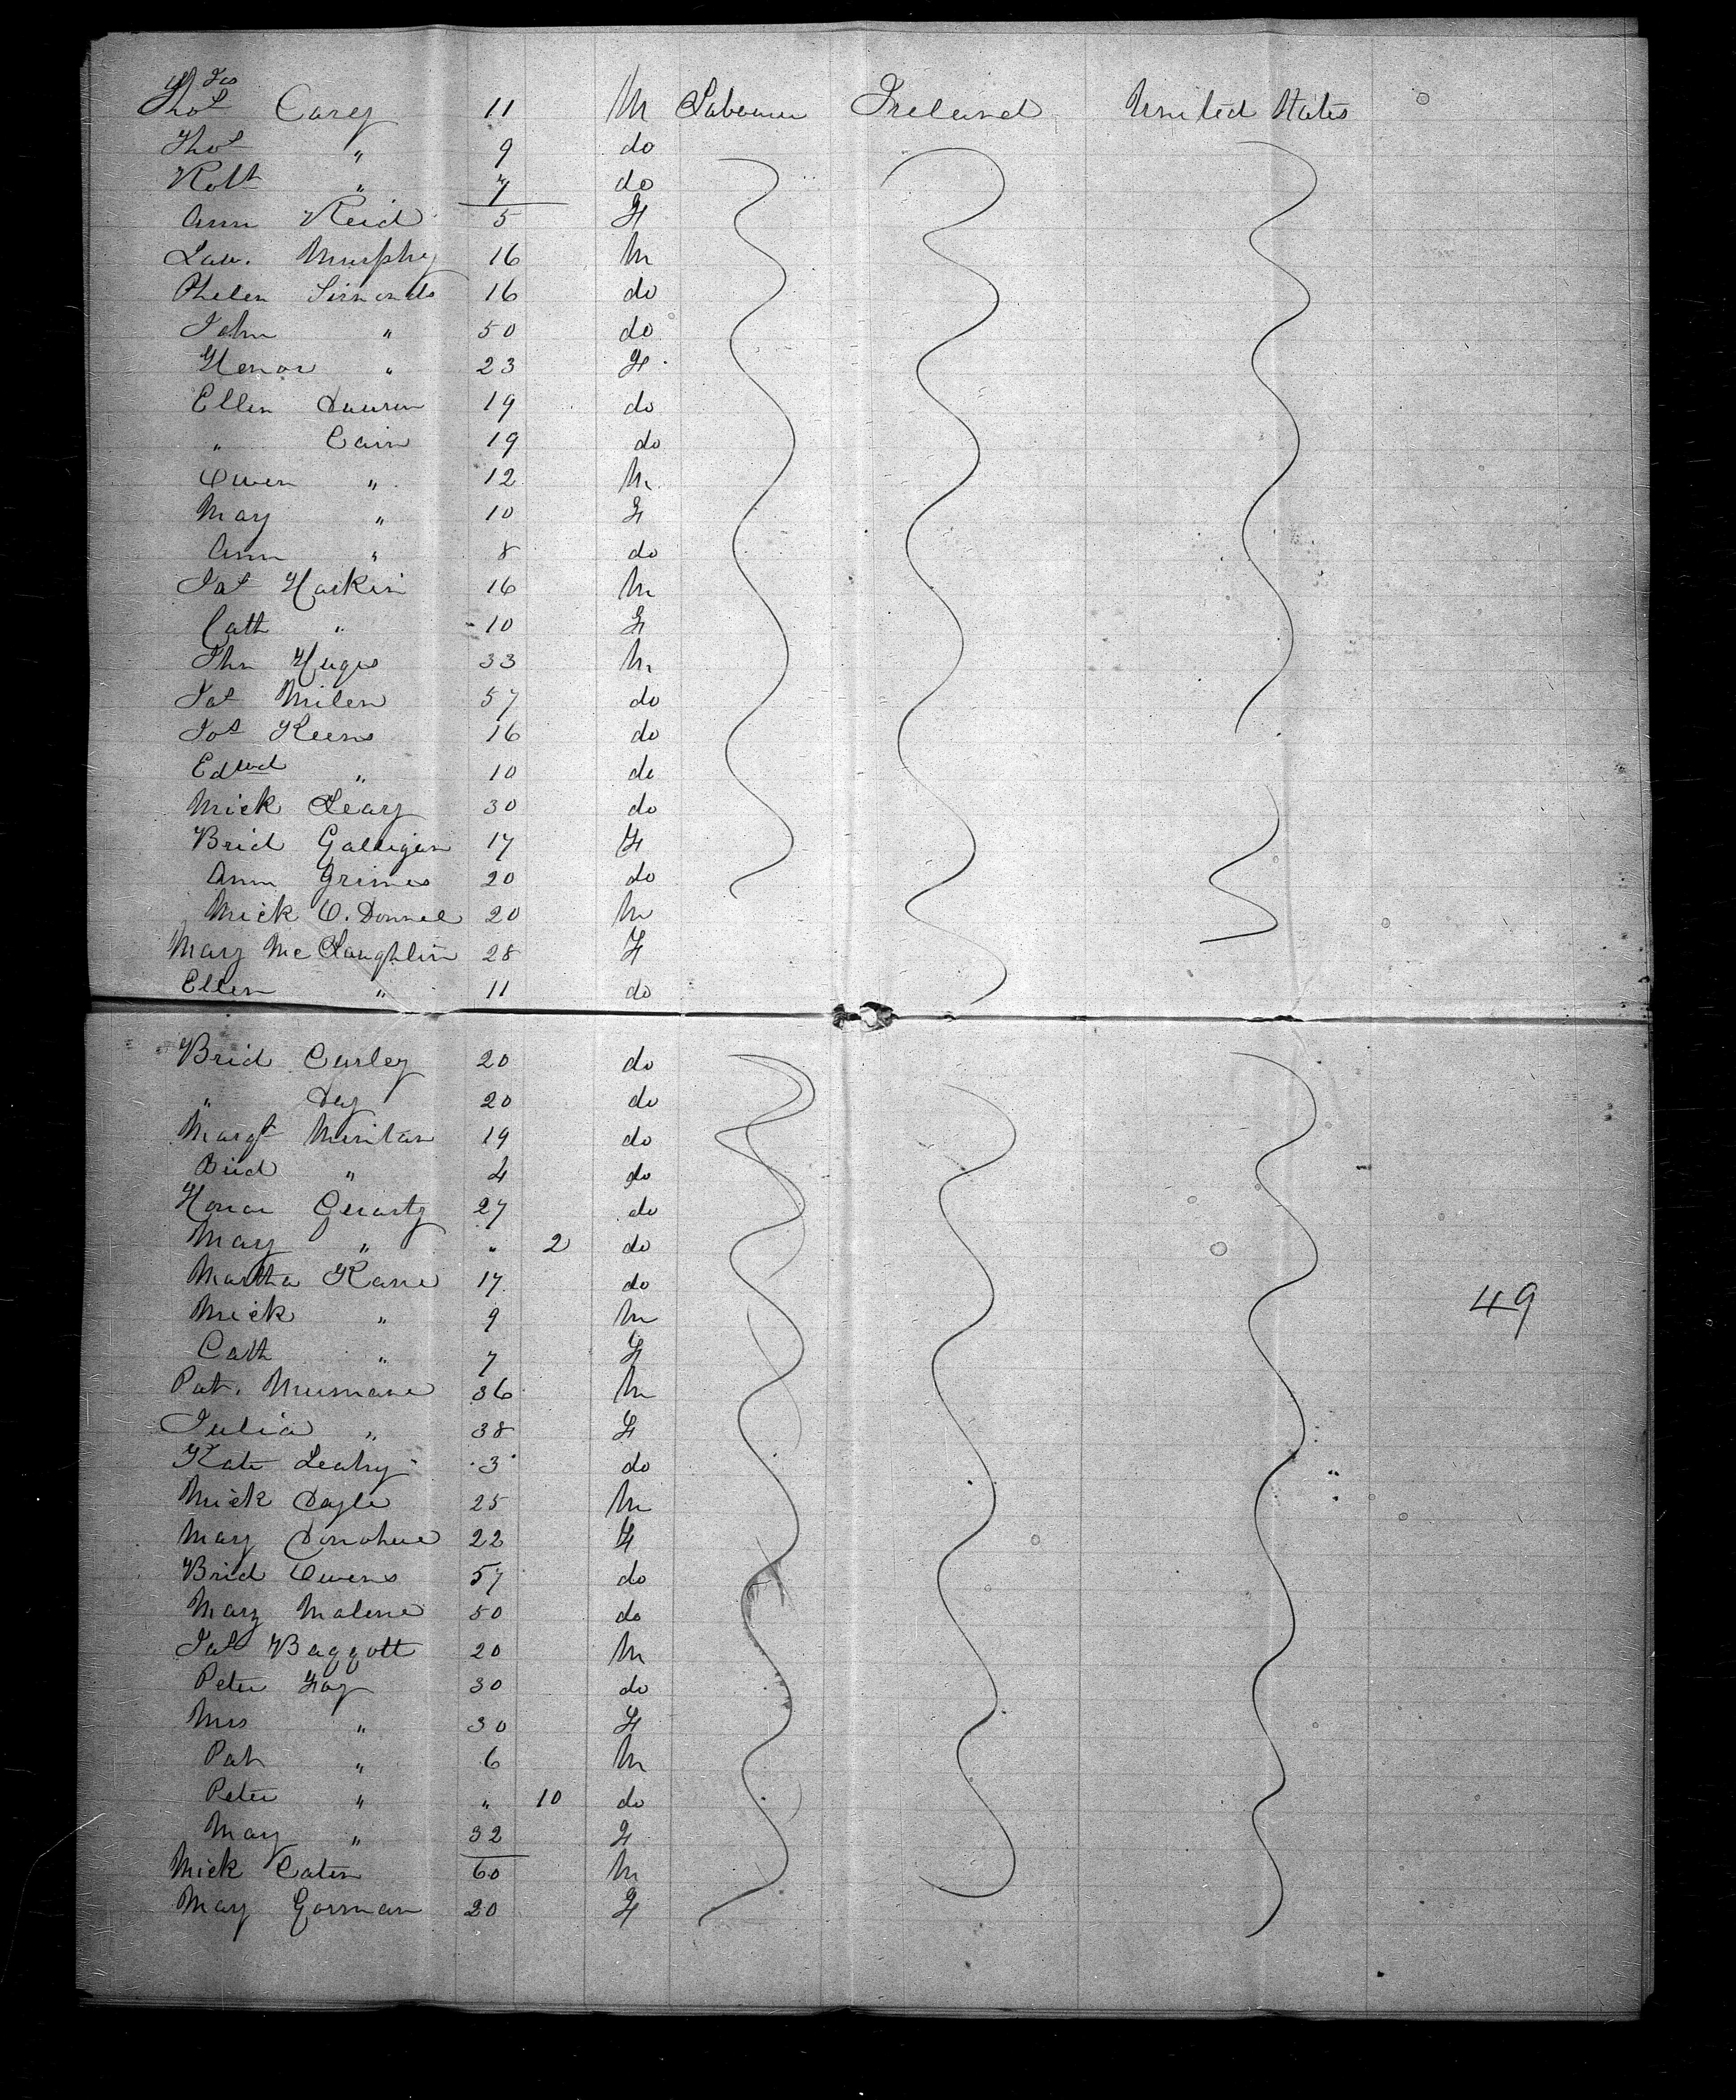 Jas
Thos Carey 11 M Labourer Ireland United States
Thos " 9 do
Robt " 7 do
Ann Reid 5 F
Law. Murphy 16 M
Phelen Simonds 16 do
John " 50 do
Honor " 23 F
Ellen 19 do
" Cain 19 do
Owen " 12 M
May " 10 F
Ann " 8 do
Jas Harkin 16 M
Cath " 10 F
Jhn Huges 33 M
Jas Milen 57 do
Jos Keens 16 do
Edwd " 10 do
Mick Leary 30 do
Brid Galligan 17 F
Ann Grimes 20 do
Mick O. Donnel 20 M
Mary McLaughlin 28 F
Ellen " 11 do
Brid Curley 20 do
" Day 20 do
Margt 19 do
Brid " 4 do
Honor Gerarty 27 do
May " " 2 do
Martha Kane 17 do
49
Mick " 9 M
Cath " 7 F
Pat. 36 M
Julia " 38 F
Kate Leahy 3 do
Mick Doyle 25 M
Mary Donohue 22 F
Brid Owens 57 do
Mary Malone 50 do
Jas Baggott 20 M
Peter Fay 30 do
Mrs " 30 F
Pat " 6 M
Peter " " 10 do
May " 32 F
Mick Caten 60 M
May Gorman 20 F